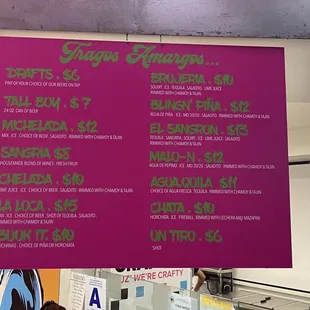 Tragos Amargos...
DRAFTS . $6
PINT OF YOUR CHOICE OF OUR BEERS ON TAP
TALL BOY . $7
24 OZ. CAN OF BEER
MICHELADA . $12
MIX. ICE. CHOICE OF BEER. SALADITO. RIMMED WITH CHAMOY & TAJIN
SANGRIA $8
HOUSEMADE BLEND OF WINES. FRESH FRUIT
CHELADA . $10
LIME JUICE. ICE. CHOICE OF BEER. SALADITO. RIMMED WITH CHAMOY & TAJIN
LA LOCA . $15
CHOICE OF BEER. SHOT OF TEQUILA. SALADITO.
RIMMED WITH CHAMOY & TAJIN
$10
CHOICE OF PIÑA OR HORCHATA
BRUJERIA . $10
SQUIRT. ICE. TEQUILA. SALADITO. LIME JUICE.
RIMMED WITH CHAMOY & TAJIN
BLINGN' PIÑA . $12
AGUA DE PIÑA. ICE. SALADITO. TEQUILA.
RIMMED WITH CHAMOY & TAJIN
EL SANGRON . $13
TEQUILA. SANGRITA. SQUIRT. ICE. SALADITO. LIME JUICE.
RIMMED WITH CHAMOY & TAJIN
MALO-N . $12
SALADITO. RIMMED WITH CHAMOY & TAJIN
AGUAQUILA $11
CHOICE OF AGUA FRESCA. TEQUILA. RIMMED WITH CHAMOY & TAJIN
CHATA . $10
HORCHATA. ICE. FIREBALL. RIMMED WITH LECHERA AND MAZAPAN
UN TIRO . $6
SHOT
A
UZ' WE'RE CRAFTY